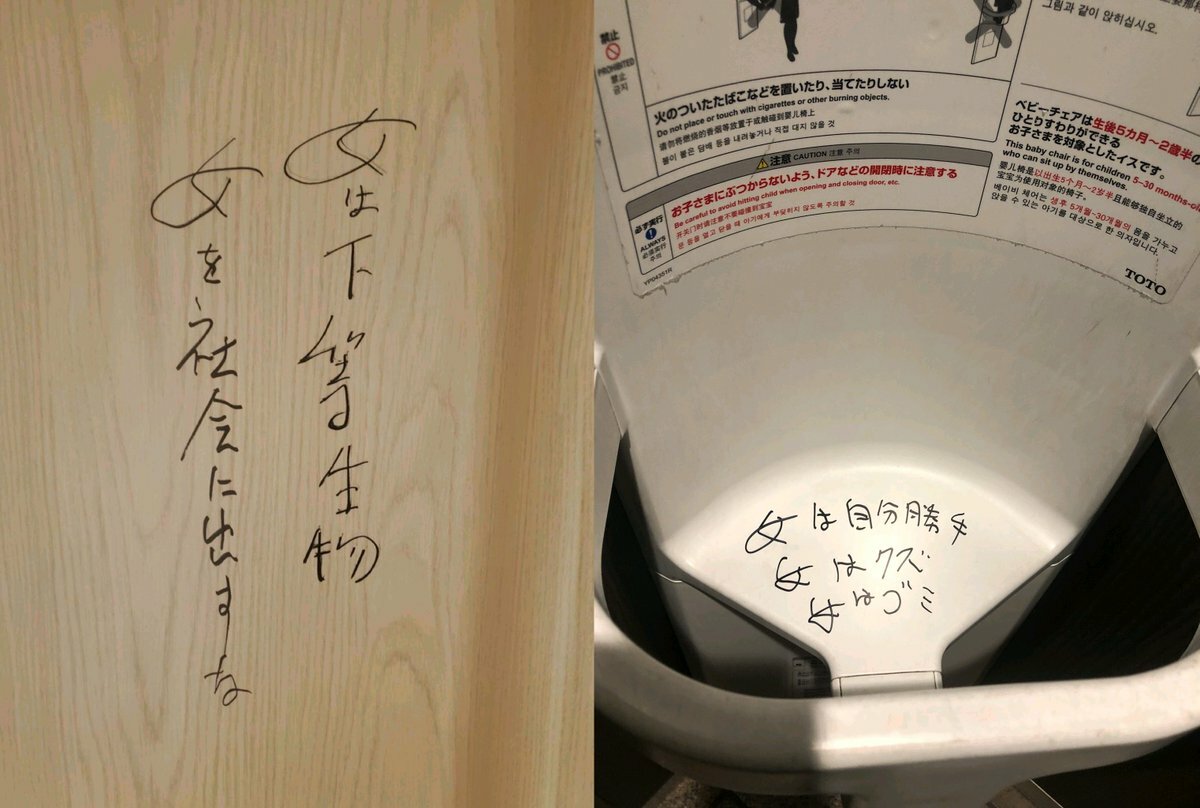 女は下等生物
女を社会に出すな
禁止
PROHIBITED
禁止
금지
火のついたたばこなどを置いたり、当てたりしない
Do not place or touch with cigarettes or other burning objects.
请勿将燃烧的香烟等放置于或触碰到婴儿椅上
불이 붙은 담배 등을 내려놓거나 직접 대지 않을 것
注意 CAUTION 注意 주의
必ず実行
ALWAYS
必须实行
주의
お子さまにぶつからないよう、ドアなどの開閉時に注意する
Be careful to avoid hitting child when opening and closing door, etc.
开关门时请注意不要碰撞到宝宝
문 등을 열고 닫을 때 아기에게 부딪히지 않도록 주의할 것
YP04351R
그림과 같이 앉히십시오.
ベビーチェアは生後5カ月～2歳半の
ひとりすわりができる
お子さまを対象としたイスです。
This baby chair is for children 5–30 months-
who can sit up by themselves.
婴儿椅是以出生5个月～2岁半且能够独自坐立的
宝宝为使用对象的椅子。
베이비 체어는 생후 5개월~30개월의 몸을 가누고
앉을 수 있는 아기를 대상으로 한 의자입니다.
TOTO
女は自分勝手
女はクズ
女はゴミ